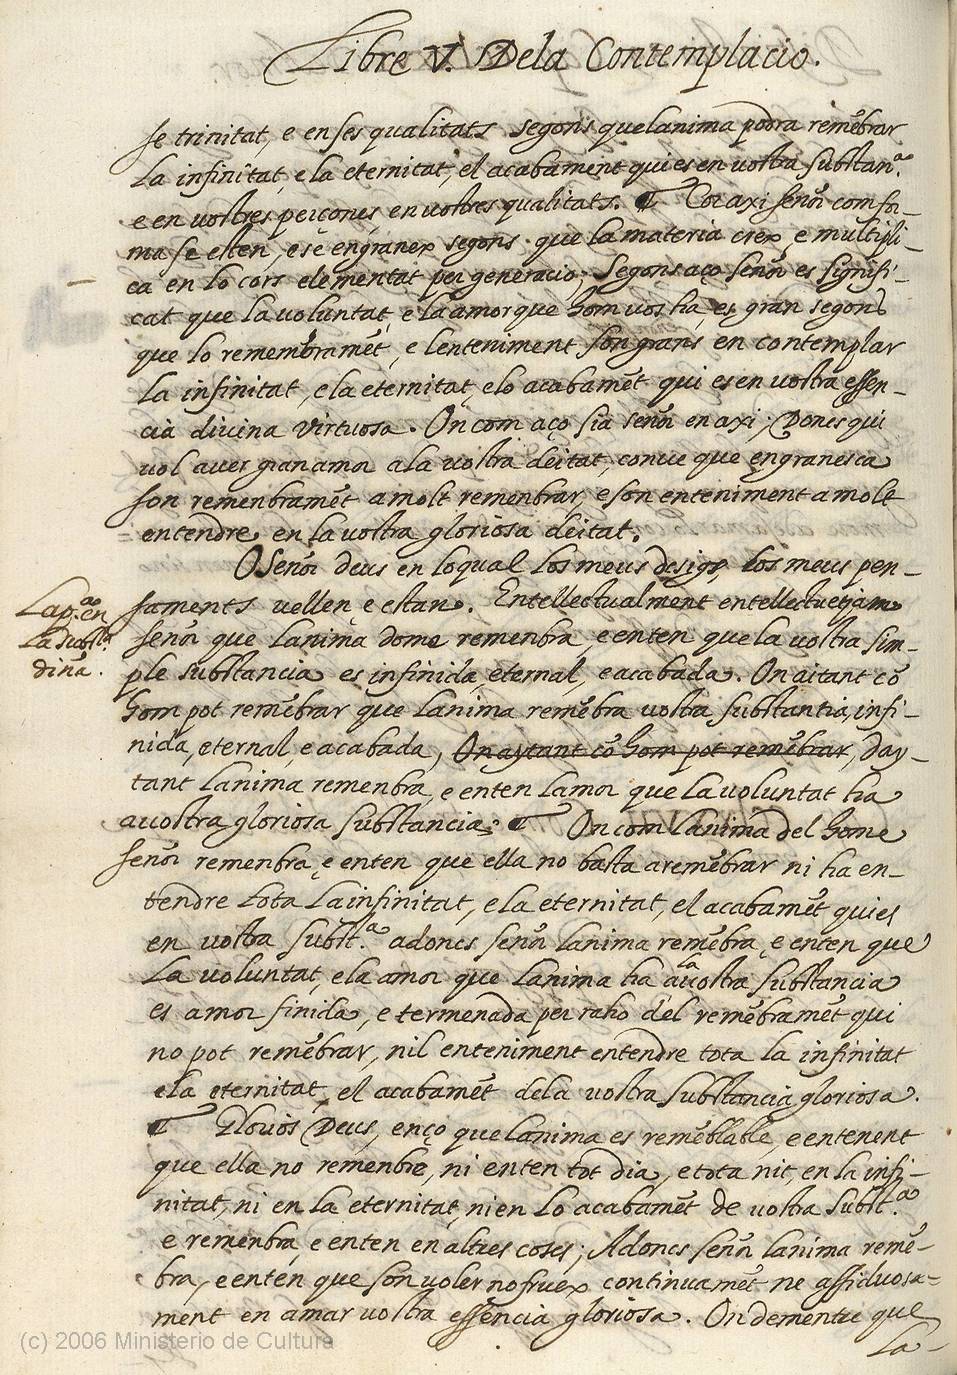 Libre V. Dela Contemplacio.
se trinitat, e en ses qualitats segons que lanima podra remēbrar
La infinitat, e la eternitat, el acabament qui es en vostra substan.ᵃ
e en vostres perçones, en vostres qualitats. ¶ Cor axi señor com for-
ma se esten, e se engranex segons que la materia crex, e multipli-
ca en lo cors elementat per generacio; Segons aço señor es signifi-
cat que la voluntat, e la amor que hom vos ha, es gran segons
que lo remembramēt, e lenteniment son grans en contemplar
La infinitat, e la eternitat, e lo acabamēt qui es en vostra essen-
cia divina virtuosa. On com aço sia señor en axi; Doncs qui
vol aver gran amor a la vostra deitat, conve que engranesca
son remenbramēt a molt remenbrar, e son enteniment a molt
entendre en la vostra gloriosa deitat.
O Señor deus en loqual los meus desigs, los meus pen-
saments vellen, e estan. Entellectualment entellectuejam
señor que lanima dome remenbra, e enten que la vostra sim-
ple substancia es infinida, eternal, e acabada. On aitant cō
hom pot remēbrar que lanima remēbra vostra substantia, infi-
nida, eternal, e acabada, On aytant cō hom pot remēbrar, day-
tant lanima remenbra, e enten lamor que la voluntat ha
a vostra gloriosa substancia: ¶ On com lanima del home
señor remenbra, e enten que ella no basta a remēbrar ni ha en-
tendre tota La infinitat, e la eternitat, el acabamēt qui es
en vostra subst.ᵃ adoncs señor lanima remēbra, e enten que
La voluntat, e la amor que lanima ha a la vostra substancia
es amor finida, e termenada per raho del remēbramēt qui
no pot remēbrar, nil enteniment entendre tota la infinitat
e la eternitat, el acabamēt dela vostra substancia gloriosa.
¶ Glorios Deus, en ço que lanima es remēblable, e entenent
que ella no remenbre, ni enten tot dia, e tota nit, en la infi-
nitat, ni en la eternitat, ni en Lo acabamēt de vostra subst.ᵃ
e remenbra, e enten en altres coses; Adoncs señor lanima remē-
bra, e enten que son voler no fruex continuamēt ne assiduosa-
ment en amar vostra essencia gloriosa. On dementre que
La-
Lap.ᵃ en
La subst.ᵃ
dinā.
(c) 2006 Ministerio de Cultura